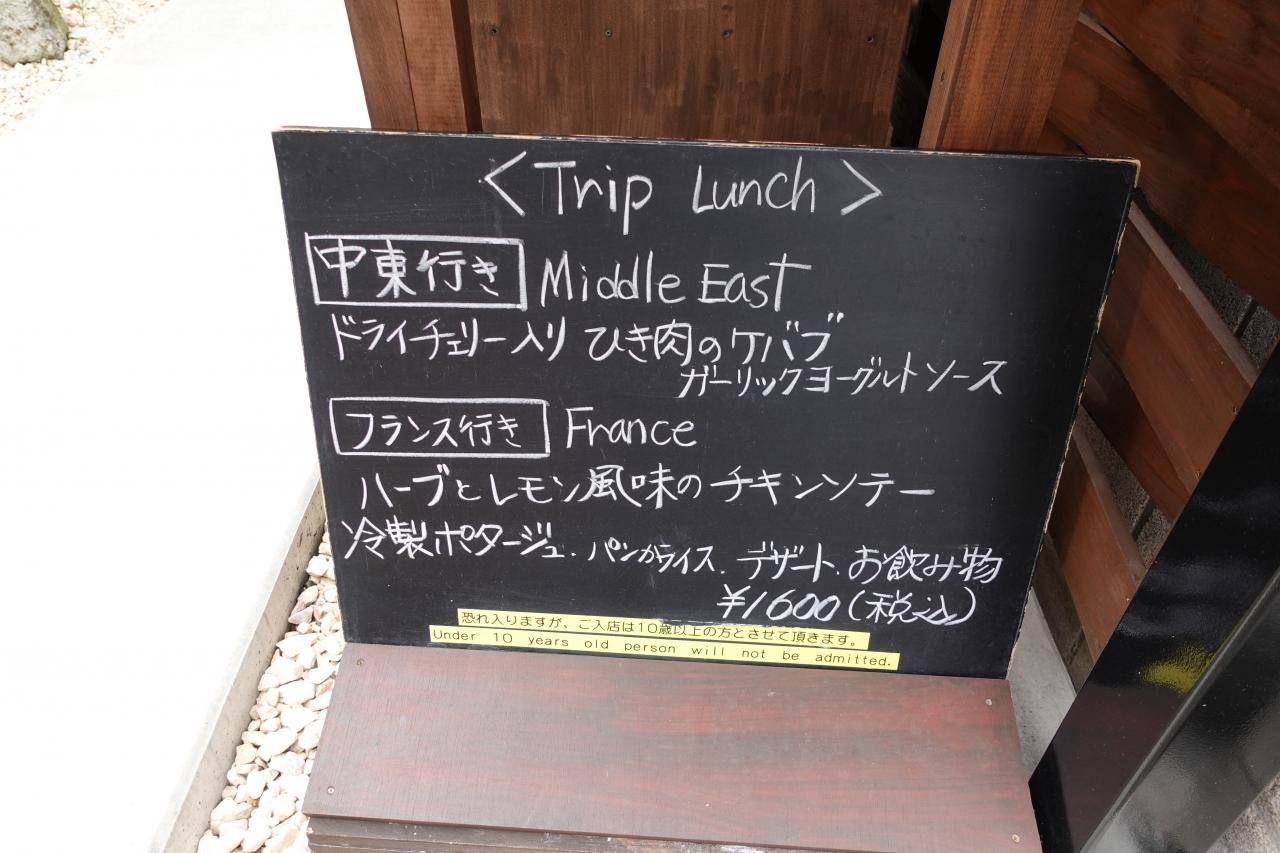 <Trip Lunch>
中東行き Middle East
ドライチェリー入り ひき肉のケバブ
ガーリックヨーグルトソース
フランス行き France
ハーブとレモン風味のチキンソテー
冷製ポタージュ. パンかライス. デザート. お飲み物
¥1600(税込)
恐れ入りますが、ご入店は10歳以上の方とさせて頂きます。
Under 10 years old person will not be admitted.